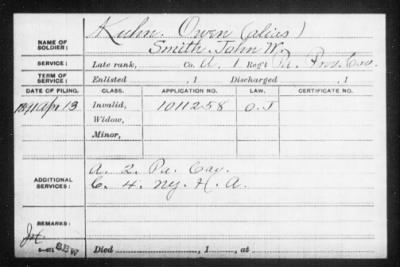 NAME OF SOLDIER: Kuhn, Owen (alias)
Smith, John W.
SERVICE: Late rank, Co. A. 1 Reg't Pa. Prov. Cav.
TERM OF SERVICE: Enlisted , 1 Discharged , 1
DATE OF FILING. CLASS. APPLICATION NO. LAW. CERTIFICATE NO.
1891 Apr 13 Invalid, 1011258 O.J
Widow,
Minor,
ADDITIONAL SERVICES: A. 2. Pa. Cav.
C. 4. Ny. H. A.
REMARKS:
Died , 1 , at